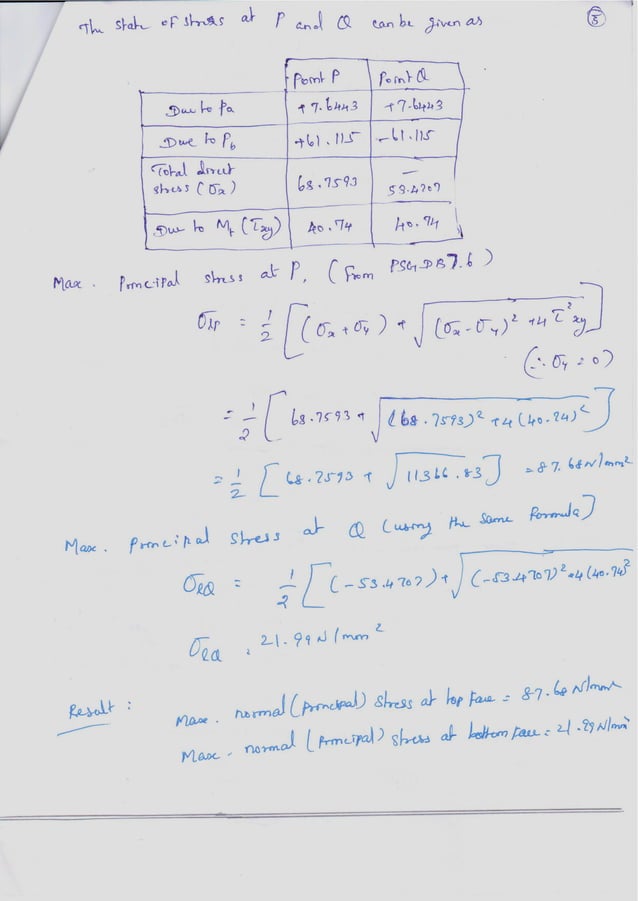 The state of stress at P and Q can be given as
5
Point P Point Q
Due to Pa +7.6443 +7.6443
Due to Pb +61.115 -61.115
Total direct stress (σx) 68.7593 -53.4707
Due to Mt (τxy) 40.74 40.74
Max. Principal stress at P, (from PSG DB 7.6)
σ1P = 1/2 [(σx + σy) + √(σx - σy)² + 4τ²xy]
(∴ σy = 0)
= 1/2 [68.7593 + √(68.7593)² + 4(40.74)²]
= 1/2 [68.7593 + √11366.83] = 87.68 N/mm²
Max. Principal stress at Q (using the same formula)
σ1Q = 1/2 [(-53.4707) + √(-53.4707)² + 4(40.74)²
σ1Q = 21.99 N/mm²
Result :
Max. normal (Principal) stress at top face = 87.68 N/mm²
Max. normal (Principal) stress at bottom face = 21.99 N/mm²